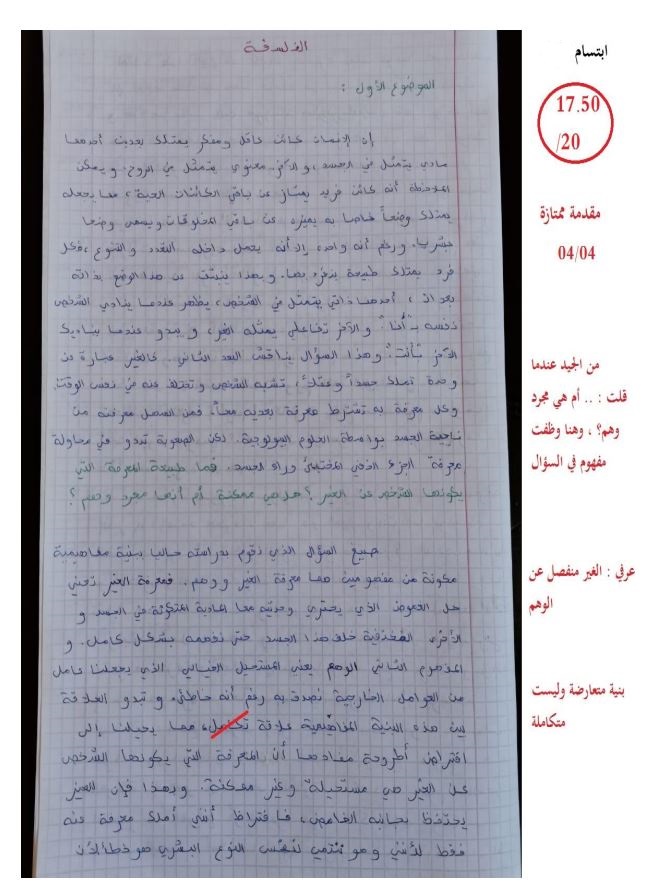 الفلسفة
الموضوع الأول :
إن الإنسان كائن عاقل ومفكر يمتلك بعدين أحدهما
مادي يتمثل في الجسد، والآخر معنوي يتمثل في الروح. ويمكن
الملاحظة أنه كائن فريد يمتاز عن باقي الكائنات الحية، مما يجعله
يمتلك وضعاً خاصا به يميزه عن باقي المخلوقات ويسمى وضعا
بشريا. ورغم أنه واحد، إلا أنه يحمل داخله التعدد والتنوع، فكل
فرد يمتلك طبيعة ينفرد بها. وبهذا ينبثق عن هذا الوضع بذاته
بعدان، أحدهما ذاتي يتمثل في الشخص، يظهر عندما ينادي الشخص
نفسه بـ"أنا" والآخر تفاعلي يمثله الغير، ويبدو عندما يناديك
الآخر بـ"أنت". وهذا السؤال يناقش البعد الثاني. فالغير عبارة عن
وحدة تملك جسداً وعقلاً، تشبه الشخص وتختلف عنه في نفس الوقت.
وكل معرفة به تشترط معرفة بعديه معاً. فمن السهل معرفته من
ناحية الجسد بواسطة العلوم البيولوجية. لكن الصعوبة تبدو في محاولة
معرفة الجزء الذهني المختبئ وراء الجسد. فما طبيعة المعرفة التي
يكونها الشخص عن الغير؟ هل هي ممكنة أم أنها مجرد وهم؟
صيغ السؤال الذي نقوم بدراسته حاليا ببنية مفاهيمية
مكونة من مفهومين هما معرفة الغير ووهم. فمعرفة الغير تعني
حل الغموض الذي يحتوي وحدتيه معا المادية المتكونة في الجسد و
الأخرى المختفية خلف هذا الجسد حتى نفهمه بشكل كامل. و
المفهوم الثاني الوهم يعني المستحيل الخيالي الذي يجعلنا عامل
من العوامل الخارجية نصدق به رغم أنه خاطئ. وتبدو العلاقة
بين هذه البنية المفاهيمية علاقة تكامل، مما يحيلنا إلى
افتراض أطروحة مفادها أن المعرفة التي يكونها الشخص
على الغير هي مستحيلة وغير ممكنة. وبهذا فإن الغير
يحتفظ بجانبه الغامض، فافتراض أنني أملك معرفة عنه
فقط لأنني وهو ننتمي لنفس النوع البشري هو خطأ لأن
ابتسام
17.50
/20
مقدمة ممتازة
04/04
من الجيد عندما
قلت : .. أم هي مجرد
وهم؟ ، وهنا وظفت
مفهوم في السؤال
عرفي : الغير منفصل عن
الوهم
بنية متعارضة وليست
متكاملة